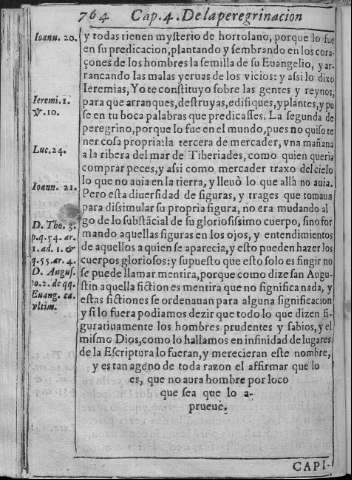 764 Cap. 4. De la peregrinacion
Ioann. 20.
y todas tienen mysterio de hortolano, porque lo fue
en su predicacion, plantando y sembrando en los cora-
çones de los hombres la semilla de su Euangelio, y ar-
rancando las malas yeruas de los vicios: y assi lo dixo
Ieremi. 1.
℣. 10.
Ieremias, Yo te constituyo sobre las gentes y reynos,
para que arranques, destruyas, edifiques, y plantes, y pu
se en tu boca palabras que predicasses. La segunda de
peregrino, porque lo fue en el mundo, pues no quiso te
Luc. 24.
ner cosa propria: la tercera de mercader, vna mañana
a la ribera del mar de Tiberiades, como quien queria
comprar peces, y assi como mercader traxo del cielo
Ioann. 21.
lo que no auia en la tierra, y lleuò lo que allà no auia.
Pero esta diuersidad de figuras, y trages que tomaua
para dissimular su propria figura, no era mudando al
D. Tho. 3.
p. q. 54. ar.
1. ad. 1. &
q. 55. ar. 4.
go de lo substãcial de su gloriosissimo cuerpo, sino for
mando aquellas figuras en los ojos, y entendimientos
de aquellos a quien se aparecia, y esto pueden hazer los
cuerpos gloriosos: y supuesto que esto solo es fingir no
D. Augus.
to. 2. de qq.
Euang. ca.
vltim.
se puede llamar mentira, porque como dize san Augu-
stin aquella fiction es mentira que no significa nada, y
estas fictiones se ordenauan para alguna significacion
y si lo fuera podiamos dezir que todo lo que dizen fi-
guratiuamente los hombres prudentes y sabios, y el
mismo Dios, como lo hallamos en infinidad de lugares
de la Escriptura lo fueran, y merecieran este nombre,
y es tan ageno de toda razon el affirmar que lo
es, que no aura hombre por loco
que sea que lo a-
prueue.
CAPI-